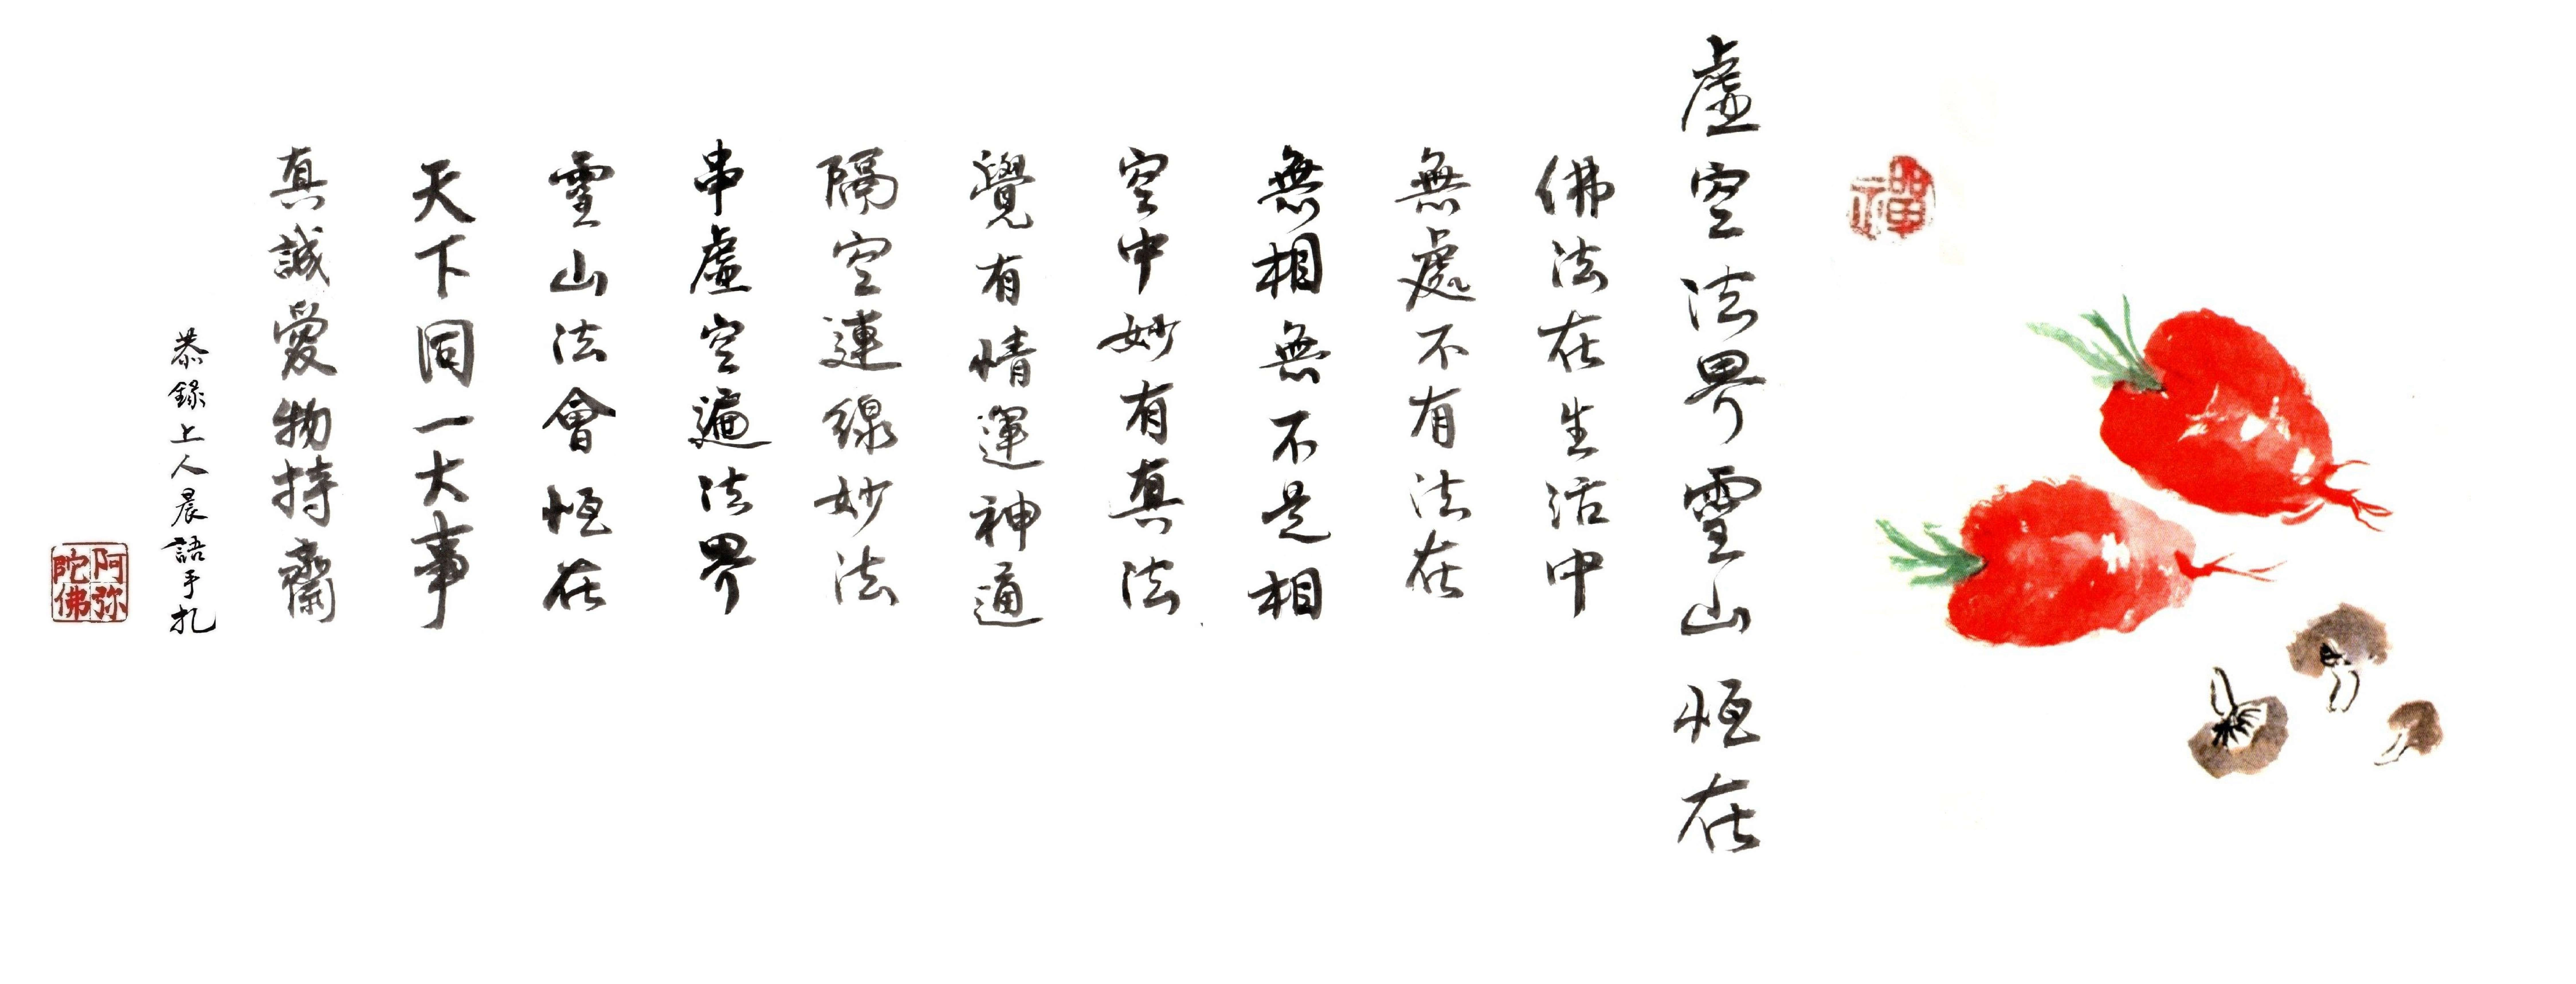 禪
虛空法界靈山恆在
佛法在生活中
無處不有法在
無相無不是相
空中妙有真法
覺有情運神通
隔空連線妙法
串虛空遍法界
靈山法會恆在
天下同一大事
真誠愛物持齋
恭錄上人晨語手扎
阿弥
陀佛